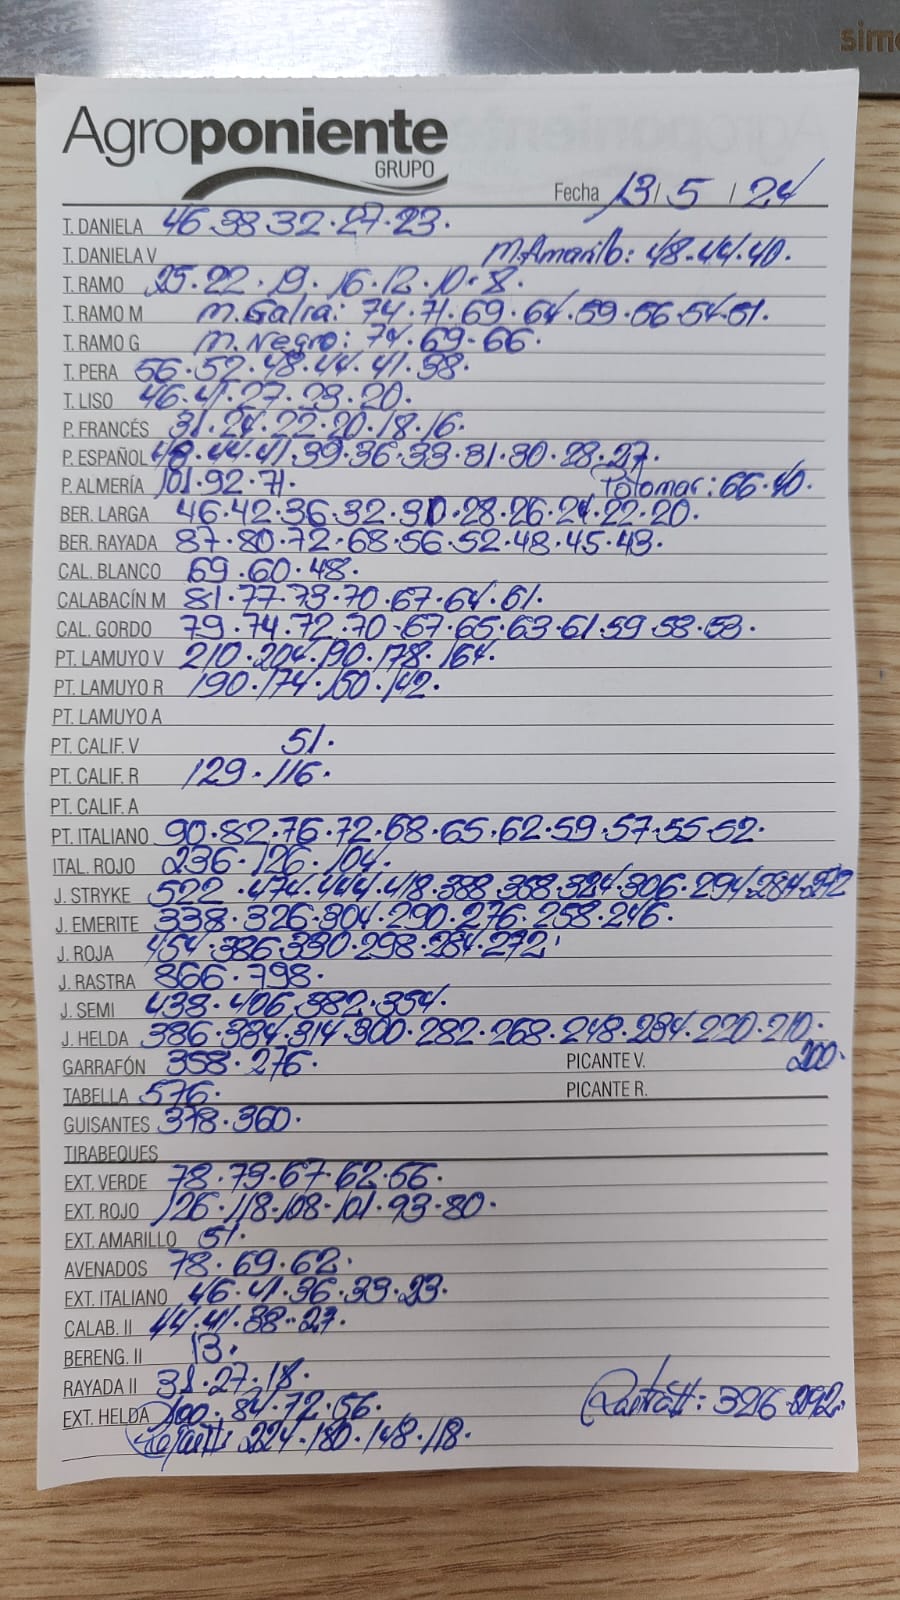 sim
Agroponiente
GRUPO
Fecha 13/5/24
T. DANIELA 46.38.32.27.23.
T. DANIELA V M.Amarillo: 48.44.40.
T. RAMO 25.22.19.16.12.10.8.
T. RAMO M M.Galia: 74.71.69.64.59.56.54.51.
T. RAMO G M.Negro: 74.69.66.
T. PERA 56.52.48.44.41.38.
T. LISO 46.41.27.23.20.
P. FRANCÉS 31.24.22.20.18.16.
P. ESPAÑOL 48.44.41.39.36.33.31.30.28.27.
P. ALMERÍA 101.92.71. Polomar: 66.40.
BER. LARGA 46.42.36.32.30.28.26.24.22.20.
BER. RAYADA 87.80.72.68.56.52.48.45.43.
CAL. BLANCO 69.60.48.
CALABACÍN M 81.77.73.70.67.64.61.
CAL. GORDO 79.74.72.70.67.65.63.61.59.58.53.
PT. LAMUYO V 210.204.190.178.164.
PT. LAMUYO R 190.174.150.142.
PT. LAMUYO A
PT. CALIF. V 51.
PT. CALIF. R 129.116.
PT. CALIF. A
PT. ITALIANO 90.82.76.72.68.65.62.59.57.55.52.
ITAL. ROJO 236.126.104.
J. STRYKE 522.474.444.418.388.358.324.306.294.284.272
J. EMERITE 338.326.304.290.276.258.246.
J. ROJA 454.386.330.298.284.272.
J. RASTRA 866.798.
J. SEMI 438.406.382.354.
J. HELDA 386.334.314.300.282.268.248.234.220.210.
GARRAFÓN 358.276. PICANTE V. 200.
TABELLA 576. PICANTE R.
GUISANTES 378.360.
TIRABEQUES
EXT. VERDE 78.79.67.62.56.
EXT. ROJO 126.118.108.101.93.80.
EXT. AMARILLO 51.
AVENADOS 78.69.62.
EXT. ITALIANO 46.41.36.39.23.
CALAB. II 44.41.38.27.
BERENG. II 13.
RAYADA II 31.27.18.
EXT. HELDA 100.84.72.56. 326.292.
224.180.148.118.